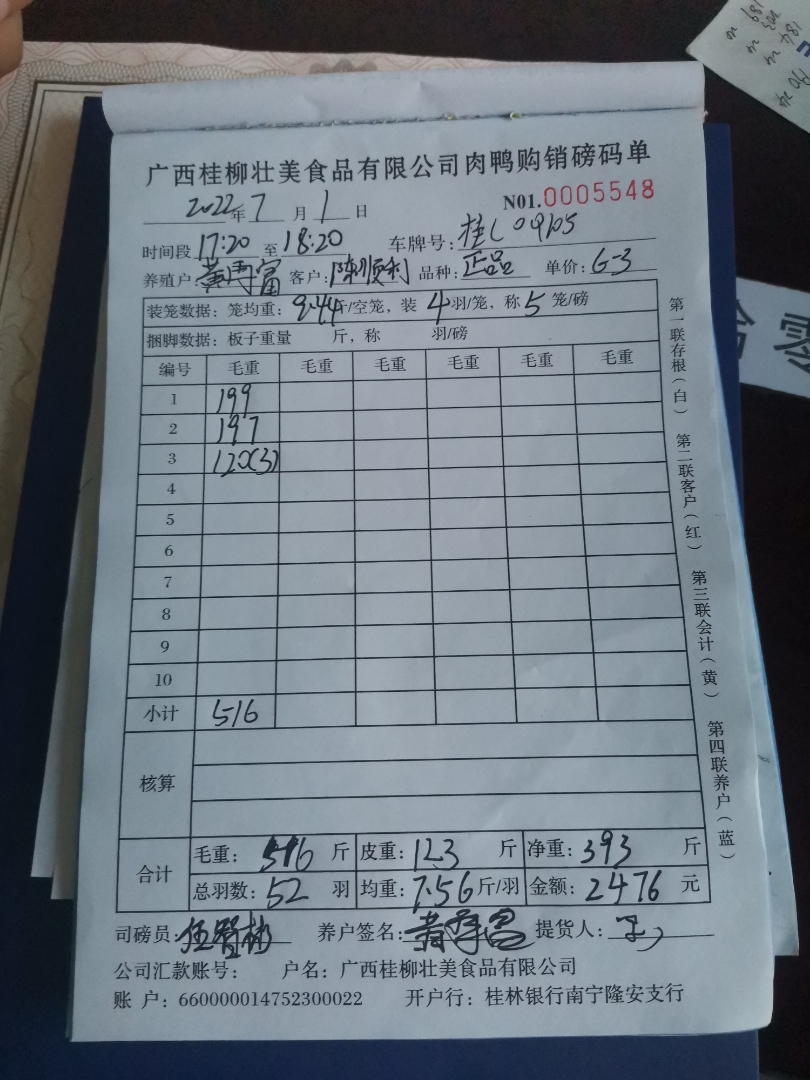 广西桂柳壮美食品有限公司肉鸭购销磅码单
2022年7月1日 N01.0005548
时间段17:20至18:20 车牌号:桂L09105
养殖户 客户:陈顺利 品种:正品 单价:6-3
装笼数据:笼均重:9.44斤/空笼,装4羽/笼,称5笼/磅
捆脚数据:板子重量 斤,称 羽/磅
编号 毛重 毛重 毛重 毛重 毛重 毛重
1 199
2 197
3 120(3)
4
5
6
7
8
9
10
小计 516
核算
合计 毛重:516斤 皮重:123斤 净重:393斤
总羽数:52羽 均重:7.56斤/羽 金额:2476元
司磅员: 养户签名: 提货人:
公司汇款账号: 户名:广西桂柳壮美食品有限公司
账 户:660000014752300022 开户行:桂林银行南宁隆安支行
第一联存根(白) 第二联客户(红) 第三联会计(黄) 第四联养户(蓝)